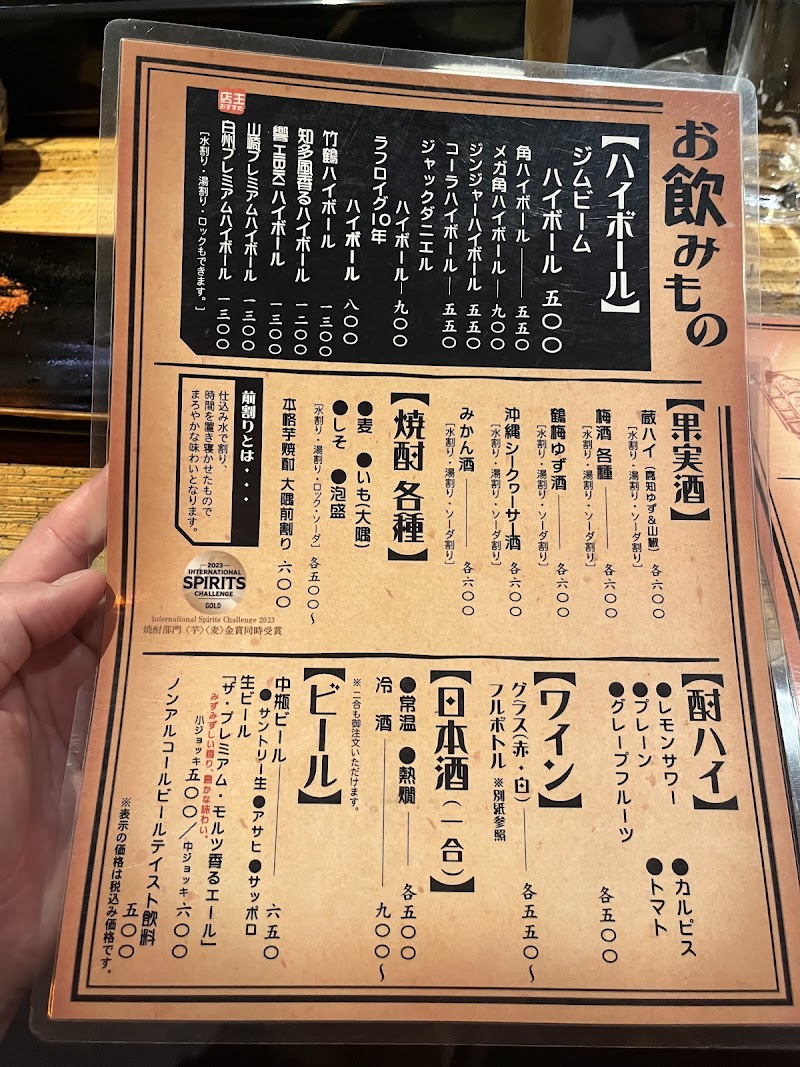 お飲みもの
【ハイボール】
ジムビーム
ハイボール 五〇〇
角ハイボール 五五〇
メガ角ハイボール 九〇〇
ジンジャーハイボール 五五〇
コーラハイボール 五五〇
ジャックダニエル
ハイボール 九〇〇
ラフロイグ10年
ハイボール 八〇〇
竹鶴ハイボール 一三〇〇
知多風香るハイボール 一二〇〇
響HIBIKIハイボール 一三〇〇
山崎プレミアムハイボール 一三〇〇
店主
おすすめ
白州プレミアムハイボール 一三〇〇
［水割り・湯割り・ロックもできます。］
【果実酒】
蔵ハイ（高知ゆず&山椒） 各六〇〇
［水割り・湯割り・ソーダ割り］
梅酒 各種 各六〇〇
［水割り・湯割り・ソーダ割り］
鶴梅ゆず酒 各六〇〇
［水割り・湯割り・ソーダ割り］
沖縄シークヮーサー酒 各六〇〇
［水割り・湯割り・ソーダ割り］
みかん酒 各六〇〇
［水割り・湯割り・ソーダ割り］
【焼酎 各種】
●麦 ●いも(大隅)
●しそ ●泡盛
［水割り・湯割り・ロック・ソーダ］各五〇〇〜
本格芋焼酎 大隅前割り 六〇〇
前割りとは・・・
仕込み水で割り、
時間を置き寝かせたもので
まろやかな味わいとなります。
2023
INTERNATIONAL
SPIRITS
CHALLENGE
GOLD
International Spirits Challenge 2023
焼酎部門〈芋〉〈麦〉金賞同時受賞
【酎ハイ】
●レモンサワー ●カルピス
●プレーン ●トマト
●グレープフルーツ 各五〇〇
【ワイン】
グラス(赤・白) 各五五〇〜
フルボトル ※別紙参照
【日本酒（一合）】
●常温 ●熱燗 各五〇〇
冷酒 九〇〇〜
※二合も御注文いただけます。
【ビール】
中瓶ビール 六五〇
●サントリー生 ●アサヒ ●サッポロ
生ビール
「ザ・プレミアム・モルツ香るエール」
みずみずしい香り、豊かな味わい。
小ジョッキ五〇〇／中ジョッキ六〇〇
ノンアルコールビールテイスト飲料
五〇〇
※表示の価格は税込み価格です。